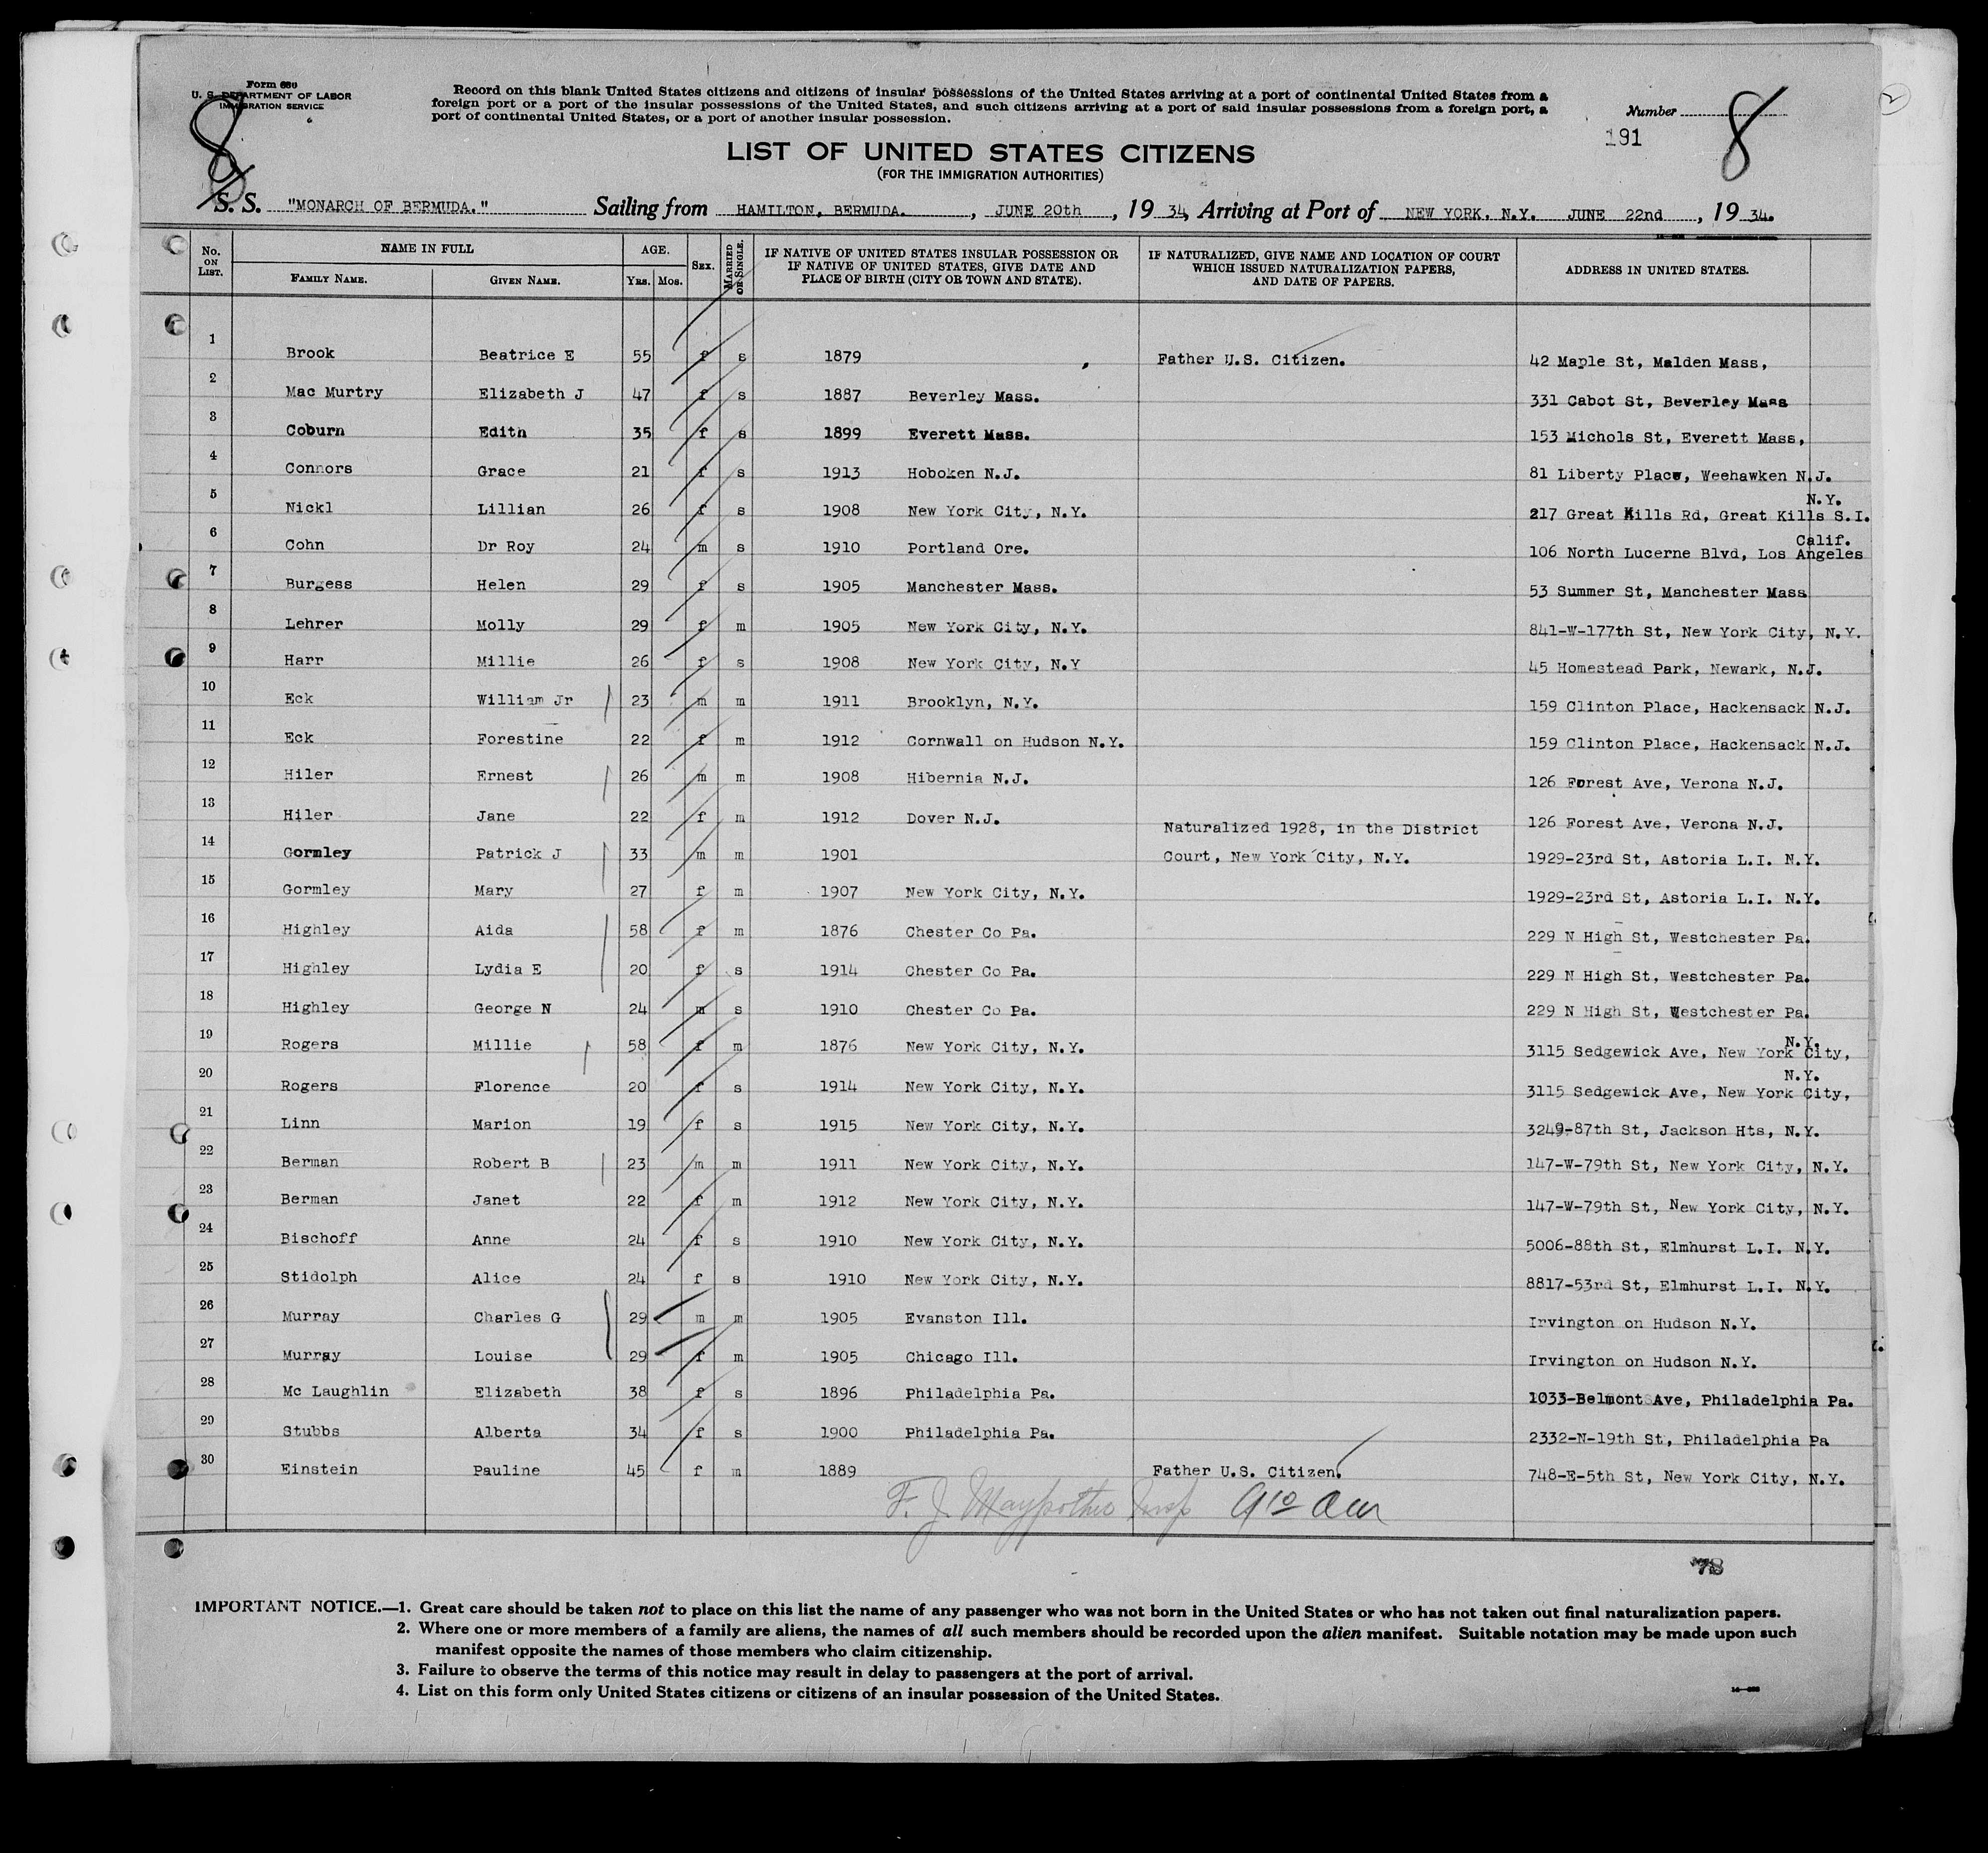 Form 630
U. S. DEPARTMENT OF LABOR
IMMIGRATION SERVICE
8
Record on this blank United States citizens and citizens of insular possessions of the United States arriving at a port of continental United States from a
foreign port or a port of the insular possessions of the United States, and such citizens arriving at a port of said insular possessions from a foreign port, a
port of continental United States, or a port of another insular possession.
Number
191
8
2
LIST OF UNITED STATES CITIZENS
(FOR THE IMMIGRATION AUTHORITIES)
S. S. "MONARCH OF BERMUDA." Sailing from HAMILTON, BERMUDA. , JUNE 20th , 19 34, Arriving at Port of NEW YORK, N.Y. JUNE 22nd , 19 34.
No. ON LIST. NAME IN FULL FAMILY NAME. GIVEN NAME. AGE. YRS. MOS. SEX. MARRIED OR SINGLE. IF NATIVE OF UNITED STATES INSULAR POSSESSION OR IF NATIVE OF UNITED STATES, GIVE DATE AND PLACE OF BIRTH (CITY OR TOWN AND STATE). IF NATURALIZED, GIVE NAME AND LOCATION OF COURT WHICH ISSUED NATURALIZATION PAPERS, AND DATE OF PAPERS. ADDRESS IN UNITED STATES.
1 Brook Beatrice E 55 f s 1879 Father U.S. Citizen. 42 Maple St, Malden Mass,
2 Mac Murtry Elizabeth J 47 f s 1887 Beverley Mass. 331 Cabot St, Beverley Mass
3 Coburn Edith 35 f s 1899 Everett Mass. 153 Nichols St, Everett Mass,
4 Connors Grace 21 f s 1913 Hoboken N.J. 81 Liberty Place, Weehawken N.J.
5 Nickl Lillian 26 f s 1908 New York City, N.Y. 217 Great Kills Rd, Great Kills S.I. N.Y.
6 Cohn Dr Roy 24 m s 1910 Portland Ore. 106 North Lucerne Blvd, Los Angeles Calif.
7 Burgess Helen 29 f s 1905 Manchester Mass. 53 Summer St, Manchester Mass
8 Lehrer Molly 29 f m 1905 New York City, N.Y. 841-W-177th St, New York City, N.Y.
9 Harr Millie 26 f s 1908 New York City, N.Y 45 Homestead Park, Newark, N.J.
10 Eck William Jr 23 m m 1911 Brooklyn, N.Y. 159 Clinton Place, Hackensack N.J.
11 Eck Forestine 22 f m 1912 Cornwall on Hudson N.Y. 159 Clinton Place, Hackensack N.J.
12 Hiler Ernest 26 m m 1908 Hibernia N.J. 126 Forest Ave, Verona N.J.
13 Hiler Jane 22 f m 1912 Dover N.J. 126 Forest Ave, Verona N.J.
Naturalized 1928, in the District
14 Gormley Patrick J 33 m m 1901 Court, New York City, N.Y. 1929-23rd St, Astoria L.I. N.Y.
15 Gormley Mary 27 f m 1907 New York City, N.Y. 1929-23rd St, Astoria L.I. N.Y.
16 Highley Aida 58 f m 1876 Chester Co Pa. 229 N High St, Westchester Pa.
17 Highley Lydia E 20 f s 1914 Chester Co Pa. 229 N High St, Westchester Pa.
18 Highley George N 24 m s 1910 Chester Co Pa. 229 N High St, Westchester Pa.
19 Rogers Millie 58 f m 1876 New York City, N.Y. 3115 Sedgewick Ave, New York City, N.Y.
20 Rogers Florence 20 f s 1914 New York City, N.Y. 3115 Sedgewick Ave, New York City, N.Y.
21 Linn Marion 19 f s 1915 New York City, N.Y. 3249-87th St, Jackson Hts, N.Y.
22 Berman Robert B 23 m m 1911 New York City, N.Y. 147-W-79th St, New York City, N.Y.
23 Berman Janet 22 f m 1912 New York City, N.Y. 147-W-79th St, New York City, N.Y.
24 Bischoff Anne 24 f s 1910 New York City, N.Y. 5006-88th St, Elmhurst L.I. N.Y.
25 Stidolph Alice 24 f s 1910 New York City, N.Y. 8817-53rd St, Elmhurst L.I. N.Y.
26 Murray Charles G 29 m m 1905 Evanston Ill. Irvington on Hudson N.Y.
27 Murray Louise 29 f m 1905 Chicago Ill. Irvington on Hudson N.Y.
28 Mc Laughlin Elizabeth 38 f s 1896 Philadelphia Pa. 1033-Belmont Ave, Philadelphia Pa.
29 Stubbs Alberta 34 f s 1900 Philadelphia Pa. 2332-N-19th St, Philadelphia Pa
30 Einstein Pauline 45 f m 1889 Father U.S. Citizen. 748-E-5th St, New York City, N.Y.
F. J. Insp
78
IMPORTANT NOTICE.—1. Great care should be taken not to place on this list the name of any passenger who was not born in the United States or who has not taken out final naturalization papers.
2. Where one or more members of a family are aliens, the names of all such members should be recorded upon the alien manifest. Suitable notation may be made upon such
manifest opposite the names of those members who claim citizenship.
3. Failure to observe the terms of this notice may result in delay to passengers at the port of arrival.
4. List on this form only United States citizens or citizens of an insular possession of the United States.